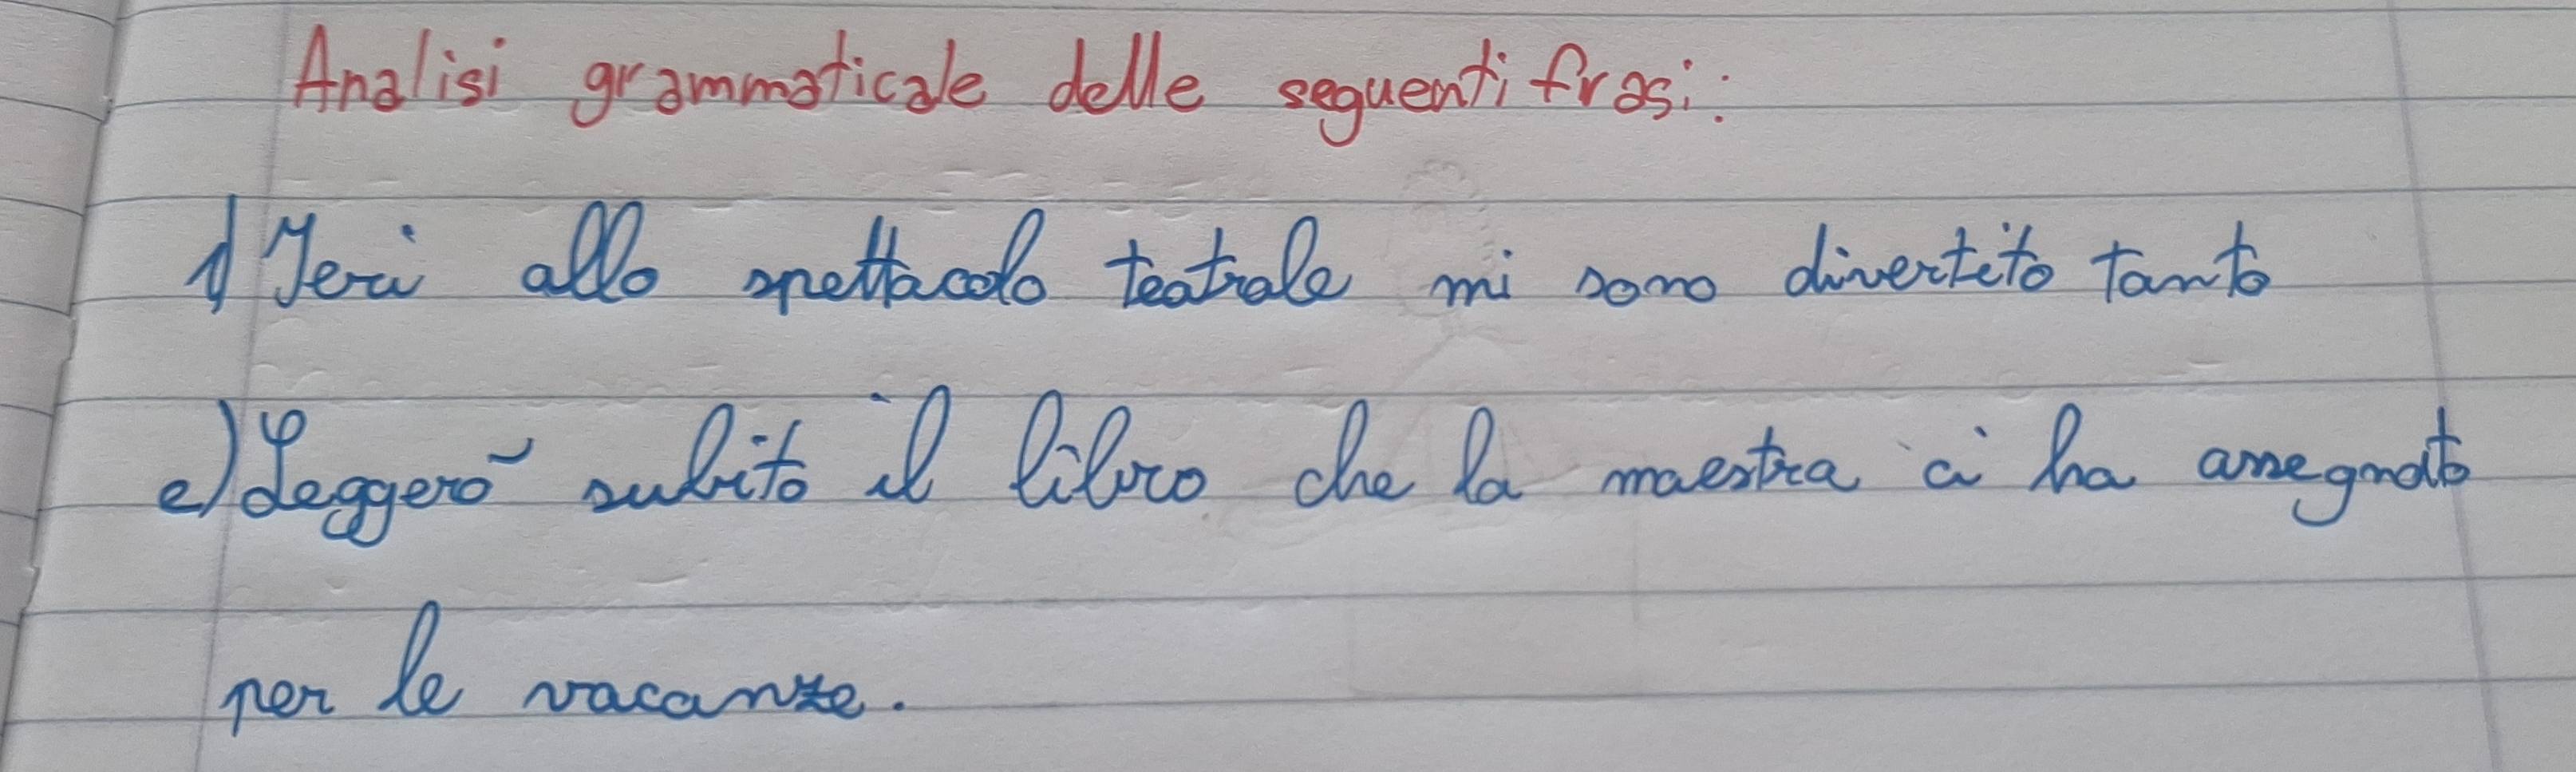 Analisi grammaticale delle seguenti frasi:
1) Ieri allo spettacolo teatrale mi sono divertito tanto
2) Leggerò subito il libro che la maestra ci ha assegnato
per le vacanze.